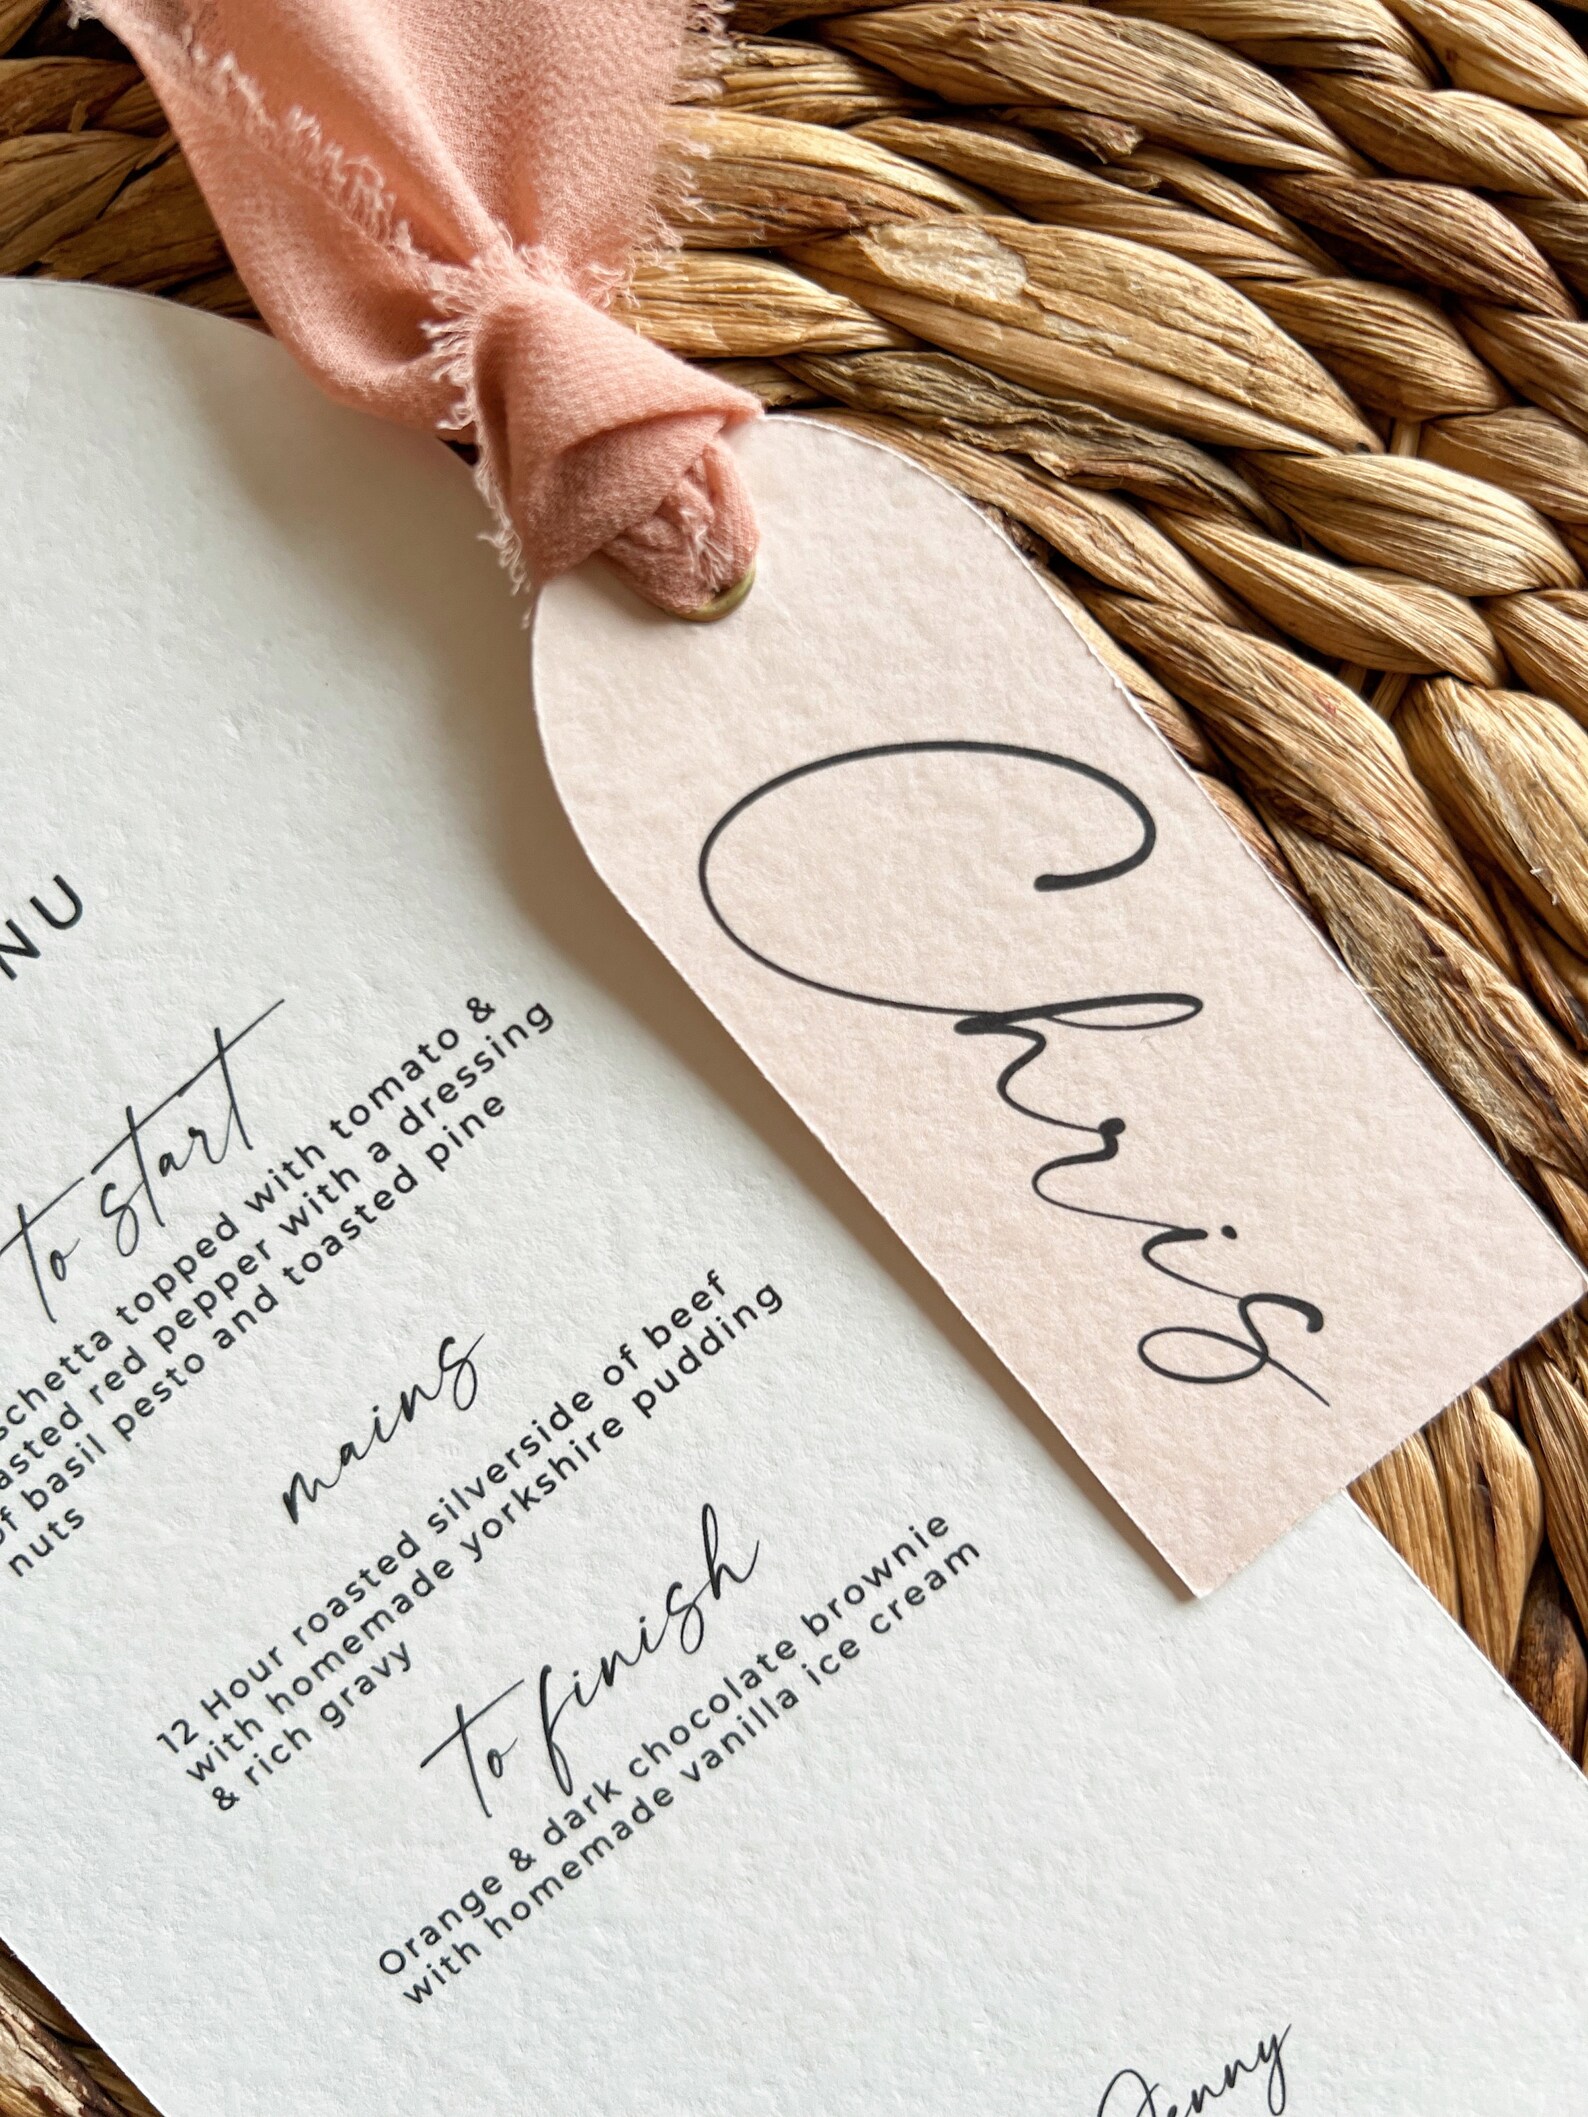 NU
to start
schetta topped with tomato &
asted red pepper with a dressing
of basil pesto and toasted pine
nuts
mains
12 Hour roasted silverside of beef
with homemade yorkshire pudding
& rich gravy
to finish
Orange & dark chocolate brownie
with homemade vanilla ice cream
Jenny
Chris